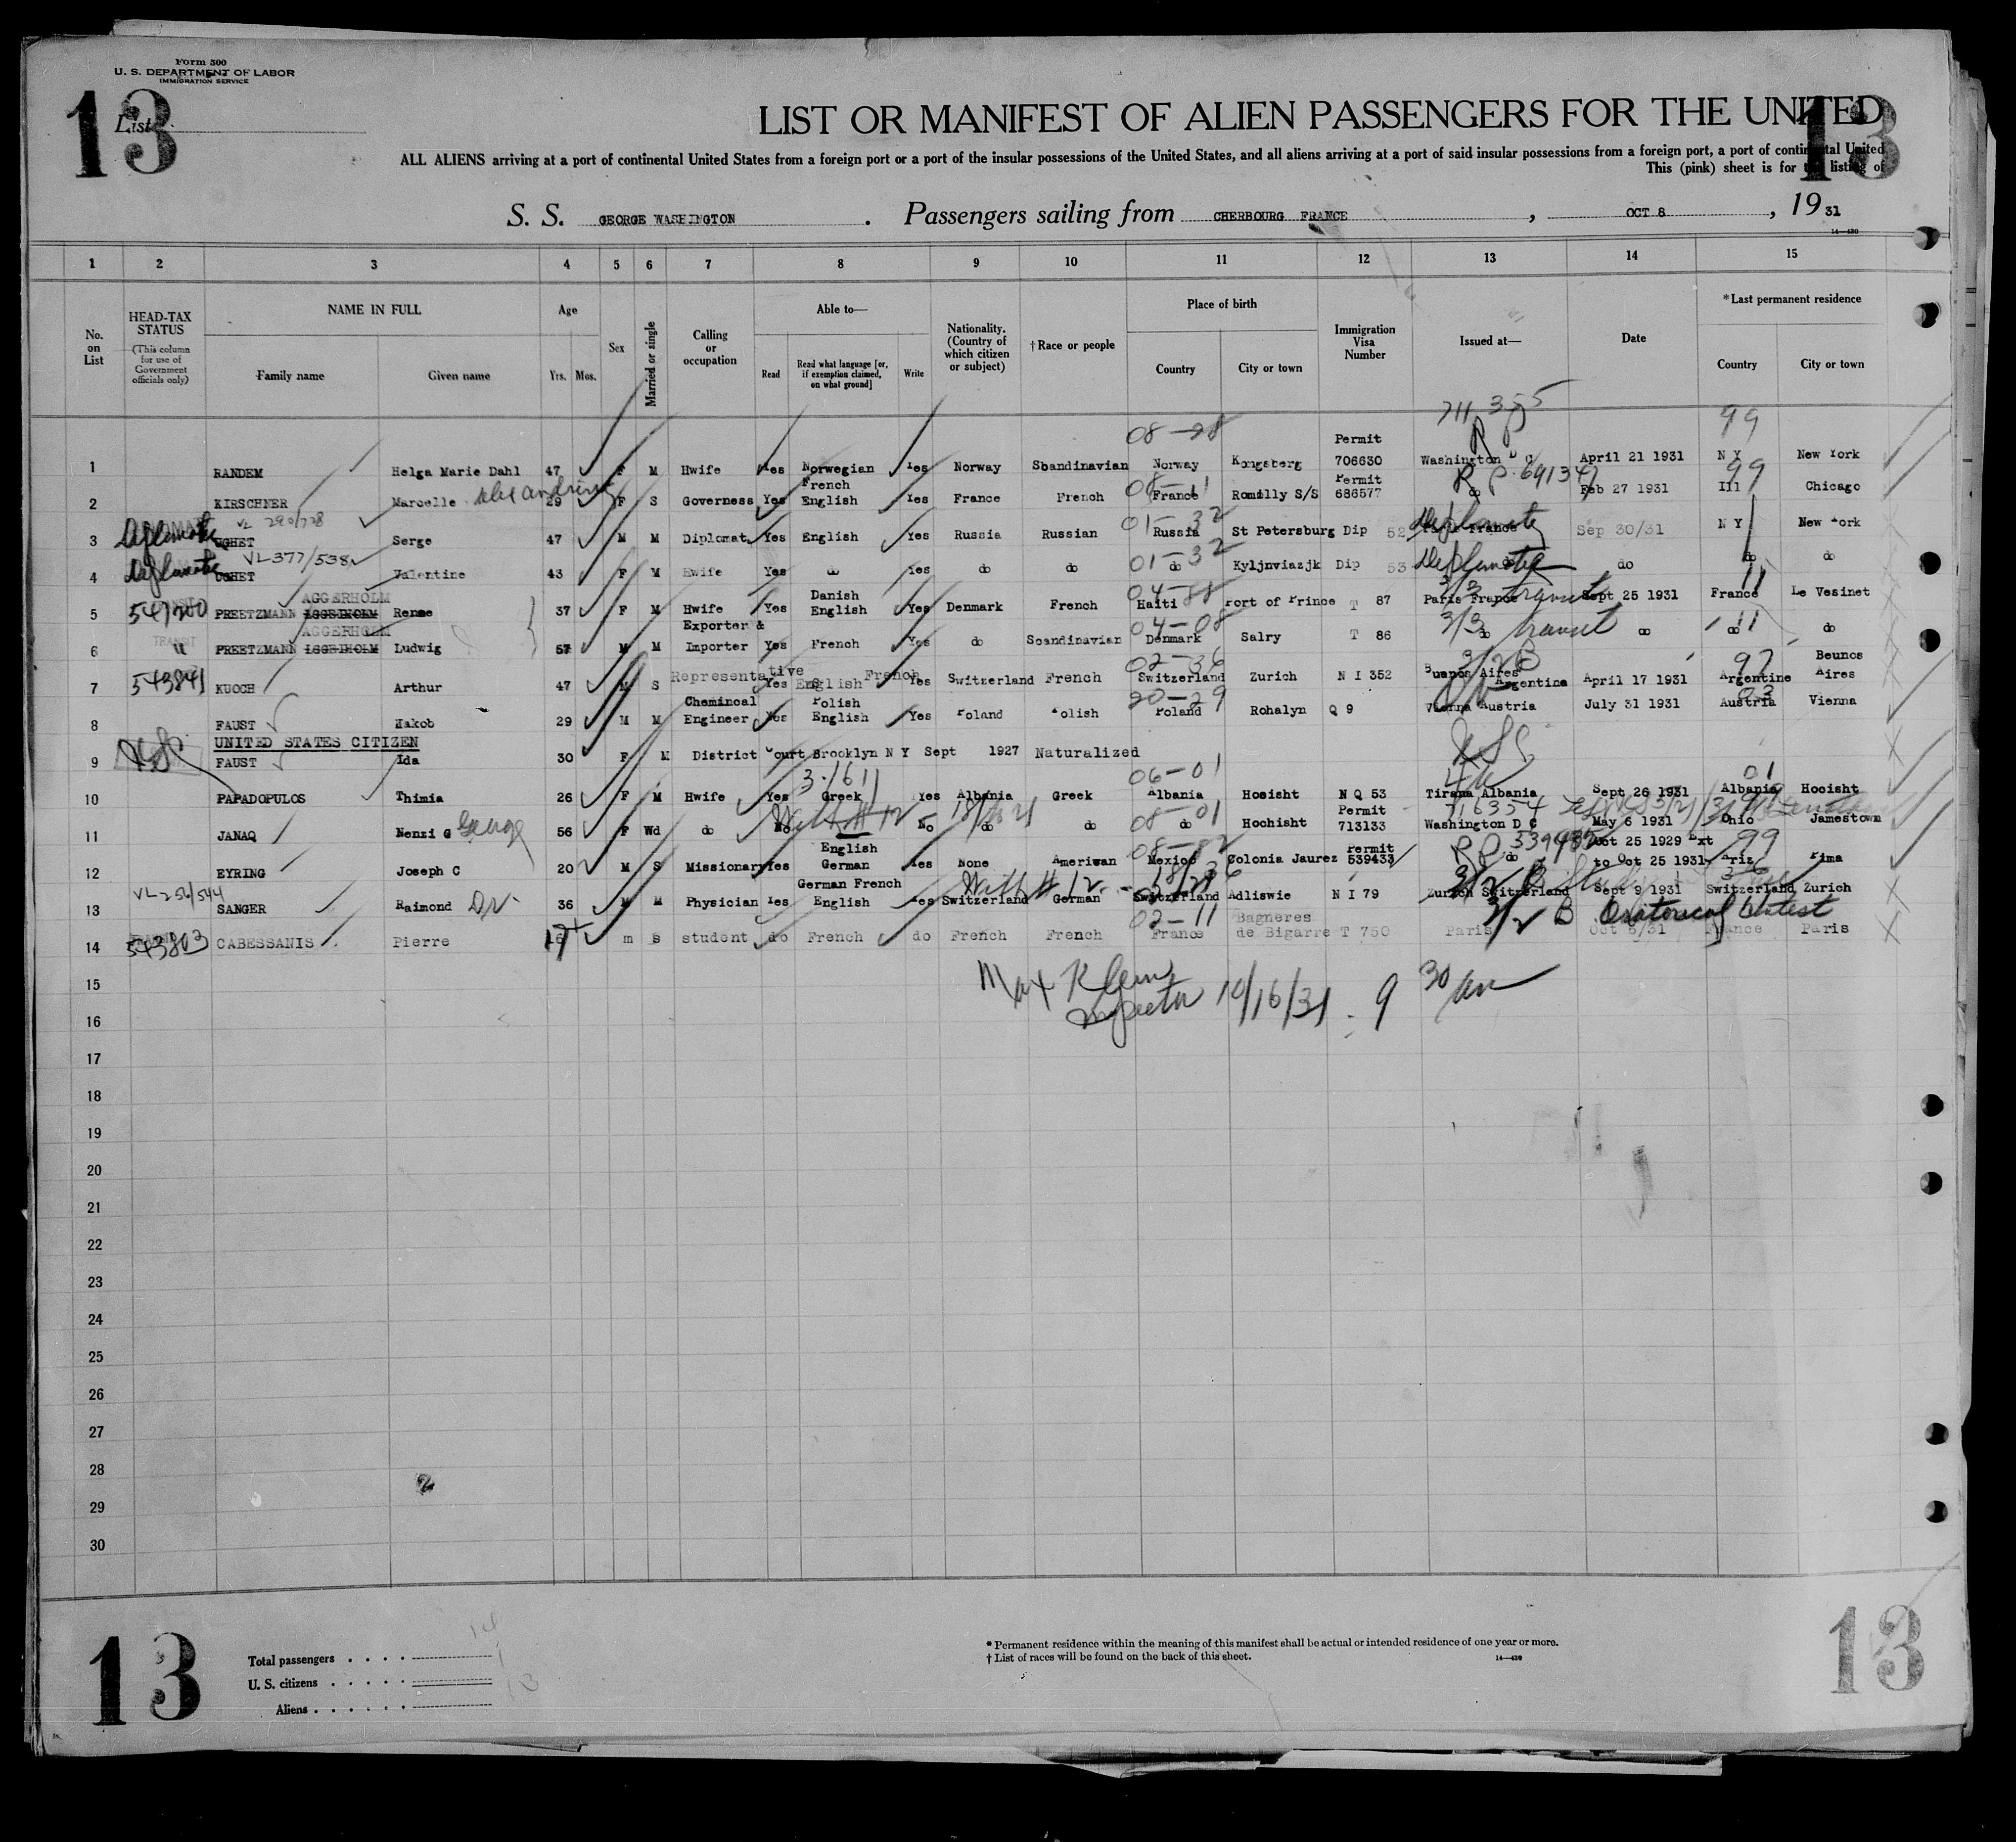 Form 500
U. S. DEPARTMENT OF LABOR
IMMIGRATION SERVICE
13
List
13
LIST OR MANIFEST OF ALIEN PASSENGERS FOR THE UNITED
ALL ALIENS arriving at a port of continental United States from a foreign port or a port of the insular possessions of the United States, and all aliens arriving at a port of said insular possessions from a foreign port, a port of continental United
This (pink) sheet is for the listing of
S. S. GEORGE WASHINGTON . Passengers sailing from CHERBOURG FRANCE , OCT 8 , 19 31
14-430
1 2 3 4 5 6 7 8 9 10 11 12 13 14 15
No. on List
HEAD-TAX STATUS (This column for use of Government officials only)
NAME IN FULL
Family name Given name
Age
Yrs. Mos.
Sex
Married or single
Calling or occupation
Able to—
Read Read what language [or, if exemption claimed, on what ground] Write
Nationality. (Country of which citizen or subject)
† Race or people
Place of birth
Country City or town
Immigration Visa Number
Issued at—
Date
* Last permanent residence
Country City or town
711355
08-98 R P 99
Permit
1 RANDEM Helga Marie Dahl 47 F M Hwife Yes Norwegian Yes Norway Sbandinavian Norway Kongsberg 706630 Washington D C April 21 1931 N Y New York
French Permit
Alexandrine 08-11 R P 691347 99
2 KIRSCHNER Marcelle 29 F S Governess Yes English Yes France French France Romilly S/S 686577 do Feb 27 1931 Ill Chicago
Diplomate VL 290/728 01-32 Diplomate
3 UGHET Serge 47 M M Diplomat Yes English Yes Russia Russian Russia St Petersburg Dip 52 Paris France Sep 30/31 N Y New York
Diplomate VL-377/538 01-32 Diplomate
4 UGHET Valentine 43 F M Hwife Yes do Yes do do do Kyljnviazjk Dip 53 do do do
AGGERHOLM Danish 04-88 3/3 transit 11
547200
5 PREETZMANN AGGEIHOLM Renee 37 F M Hwife Yes English Yes Denmark French Haiti Port of Prince T 87 Paris France Sept 25 1931 France Le Vesinet
TRANSIT AGGERHOLM Exporter & 04-08 3/3 transit 11
6 PREETZMANN AGGEIHOLM Ludwig 57 M M Importer Yes French Yes do Scandinavian Denmark Salry T 86 do do do do
543841 Representative English French 02-36 3/2 B 97 Beunos
7 KUOCH Arthur 47 M S Yes Yes Switzerland French Switzerland Zurich N I 352 Buenos Aires Argentina April 17 1931 Argentine Aires
Chemincal Polish 20-29 03
8 FAUST Hakob 29 M M Engineer Yes English Yes Poland Polish Poland Rohalyn Q 9 Vienna Austria July 31 1931 Austria Vienna
UNITED STATES CITIZEN
9 FAUST Ida 30 F M District Court Brooklyn N Y Sept 1927 Naturalized
3-1611 06-01 01
10 PAPADOPULOS Thimia 26 F M Hwife Yes Greek Yes Albania Greek Albania Hocisht N Q 53 Tirana Albania Sept 26 1931 Albania Hocisht
George With # 12 08-01 Permit 716354 99
11 JANAQ Nenzi G 56 F Wd do No No do do do Hochisht 713133 Washington D C May 6 1931 Ohio Jamestown
English 08-82 Permit R P 539432 Oct 25 1929 Ext 99
12 EYRING Joseph C 20 M S Missionary Yes German Yes None Ameriwan Mexico Colonia Jaurez 539433 do to Oct 25 1931 Ariz Pima
VL-256/544 German French With # 12 3/2 B 36
13 SANGER Raimond Dr. 36 M M Physician Yes English Yes Switzerland German Switzerland Adliswie N I 79 Zurich Switzerland Sept 9 1931 Switzerland Zurich
02-11 Bagneres 3/2 B Oratorical Contest
543803
14 CABESSANIS Pierre 17 m s student do French do French French France de Bigarre T 750 Paris Oct 5/31 France Paris
15
Max Klein
Inspector 10/16/31 . 9 30 am
16
17
18
19
20
21
22
23
24
25
26
27
28
29
30
13
Total passengers . . . . 14
U. S. citizens . . . . . 1
Aliens . . . . . . 13
* Permanent residence within the meaning of this manifest shall be actual or intended residence of one year or more.
† List of races will be found on the back of this sheet.
14-430
13